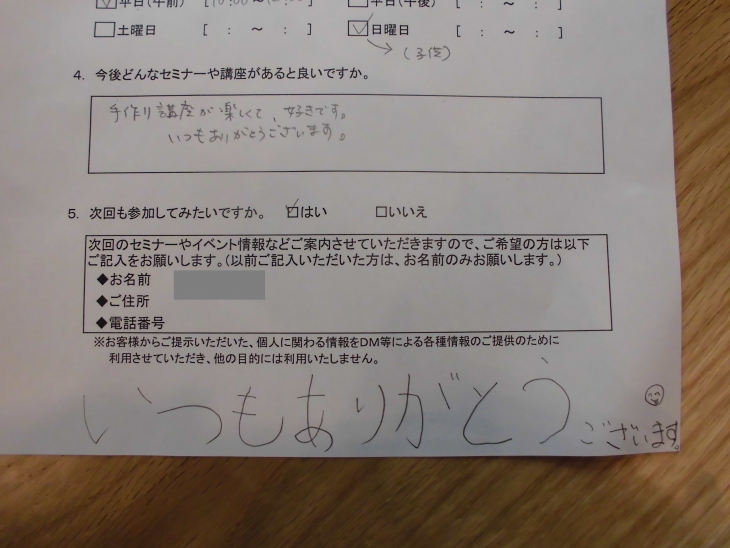 ☑平日(午前) [10:00～12:00] □平日(午後) [ : ～ : ]
□土曜日 [ : ～ : ] ☑日曜日 [ : ～ : ]
→(子供)
4. 今後どんなセミナーや講座があると良いですか。
手作り講座が楽しくて、好きです。
いつもありがとうございます。
5. 次回も参加してみたいですか。 ☑はい □いいえ
次回のセミナーやイベント情報などご案内させていただきますので、ご希望の方は以下
ご記入をお願いします。(以前ご記入いただいた方は、お名前のみお願いします。)
◆お名前
◆ご住所
◆電話番号
※お客様からご提示いただいた、個人に関わる情報をDM等による各種情報のご提供のために
利用させていただき、他の目的には利用いたしません。
いつもありがとうございます。